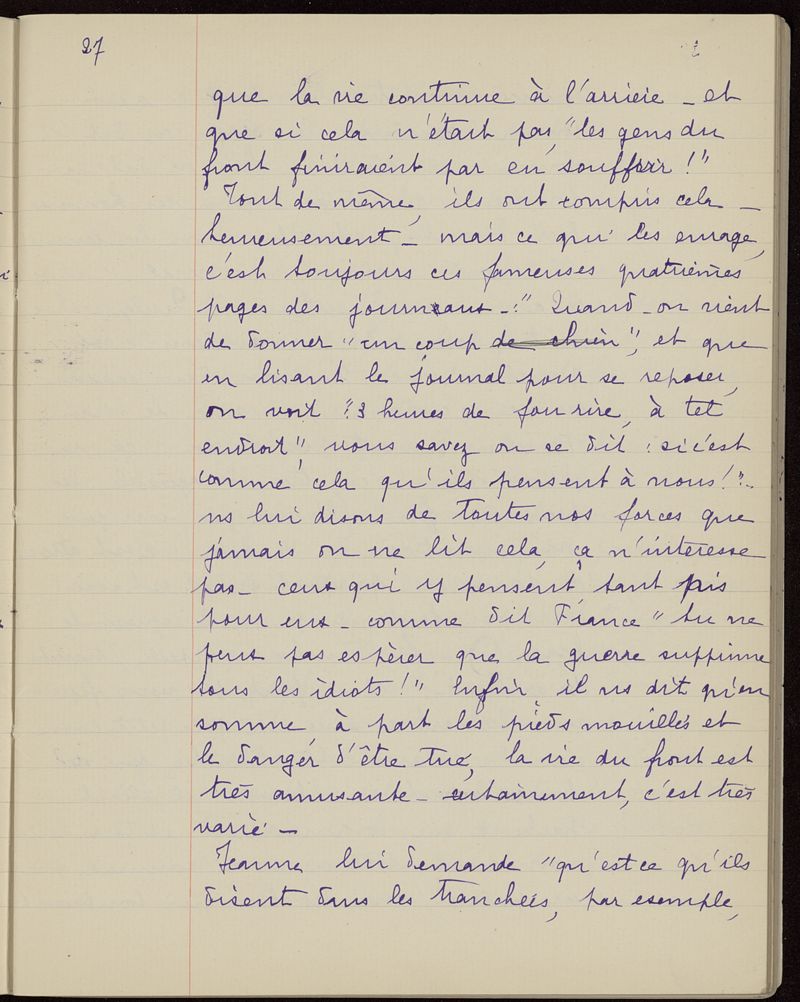 27
que la vie continue à l'arrière _ et
que si cela n'était pas, "les gens du
front finiraient par en souffrir !"
Tout de même, ils ont compris cela _
heureusement _ mais ce qui les enrage,
c'est toujours ces fameuses quatrièmes
pages des journaux _ : " Quand _ on vient
de donner "un coup de chien", et que
en lisant le journal pour se reposer,
on voit "3 heures de fou rire, à tel
endroit", vous savez on se dit : si c'est
comme cela qu'ils pensent à nous !" _
ns lui disons de toutes nos forces que
jamais on ne lit cela, ça n'intéresse
pas _ ceux qui y pensent, tant pis
pour eux _ comme dit France "tu ne
peux pas espérer que la guerre supprime
tous les idiots !" Enfin, il ns dit qu'en
somme, à part les pieds mouillés et
le danger d'être tué, la vie du front est
très amusante _ certainement, c'est très
varié _
Jeanne lui demande "qu'est ce qu'ils
disent dans les tranchées, par exemple,